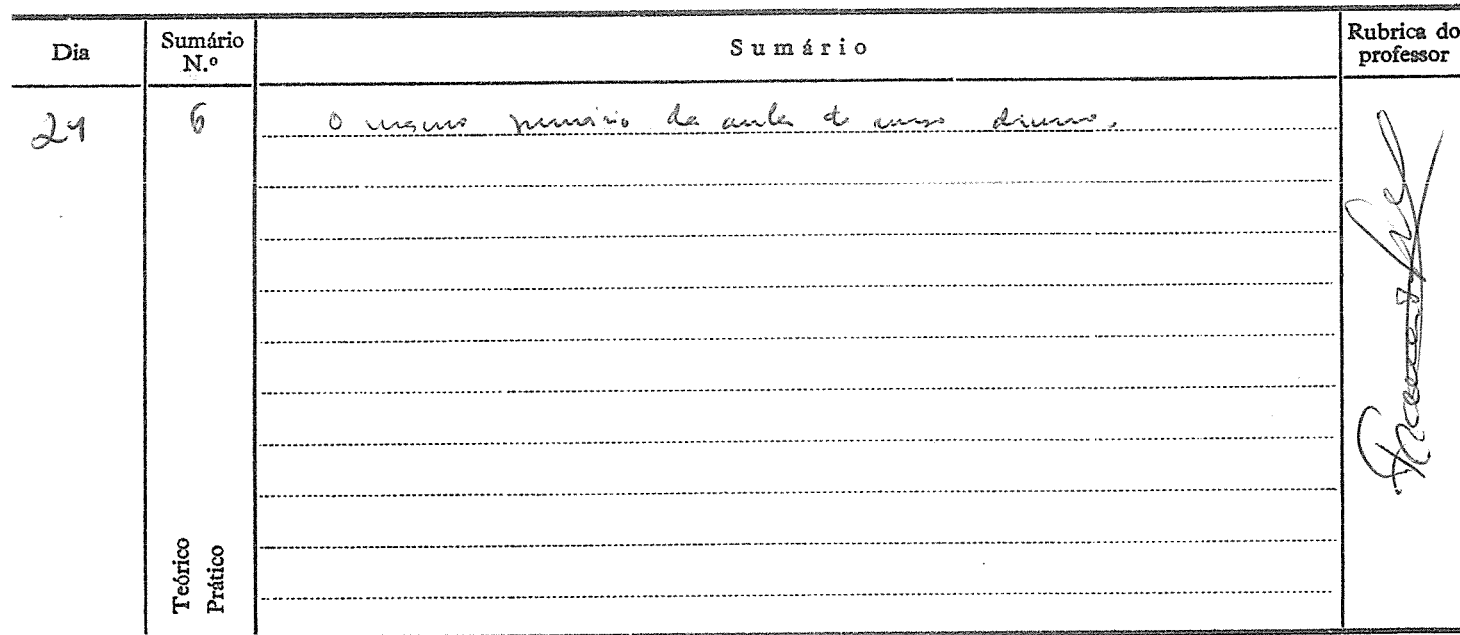 Dia
Sumário N.º
Sumário
Rubrica do professor
21
6
O mesmo sumário da aula do curso diurno.
Teórico
Prático